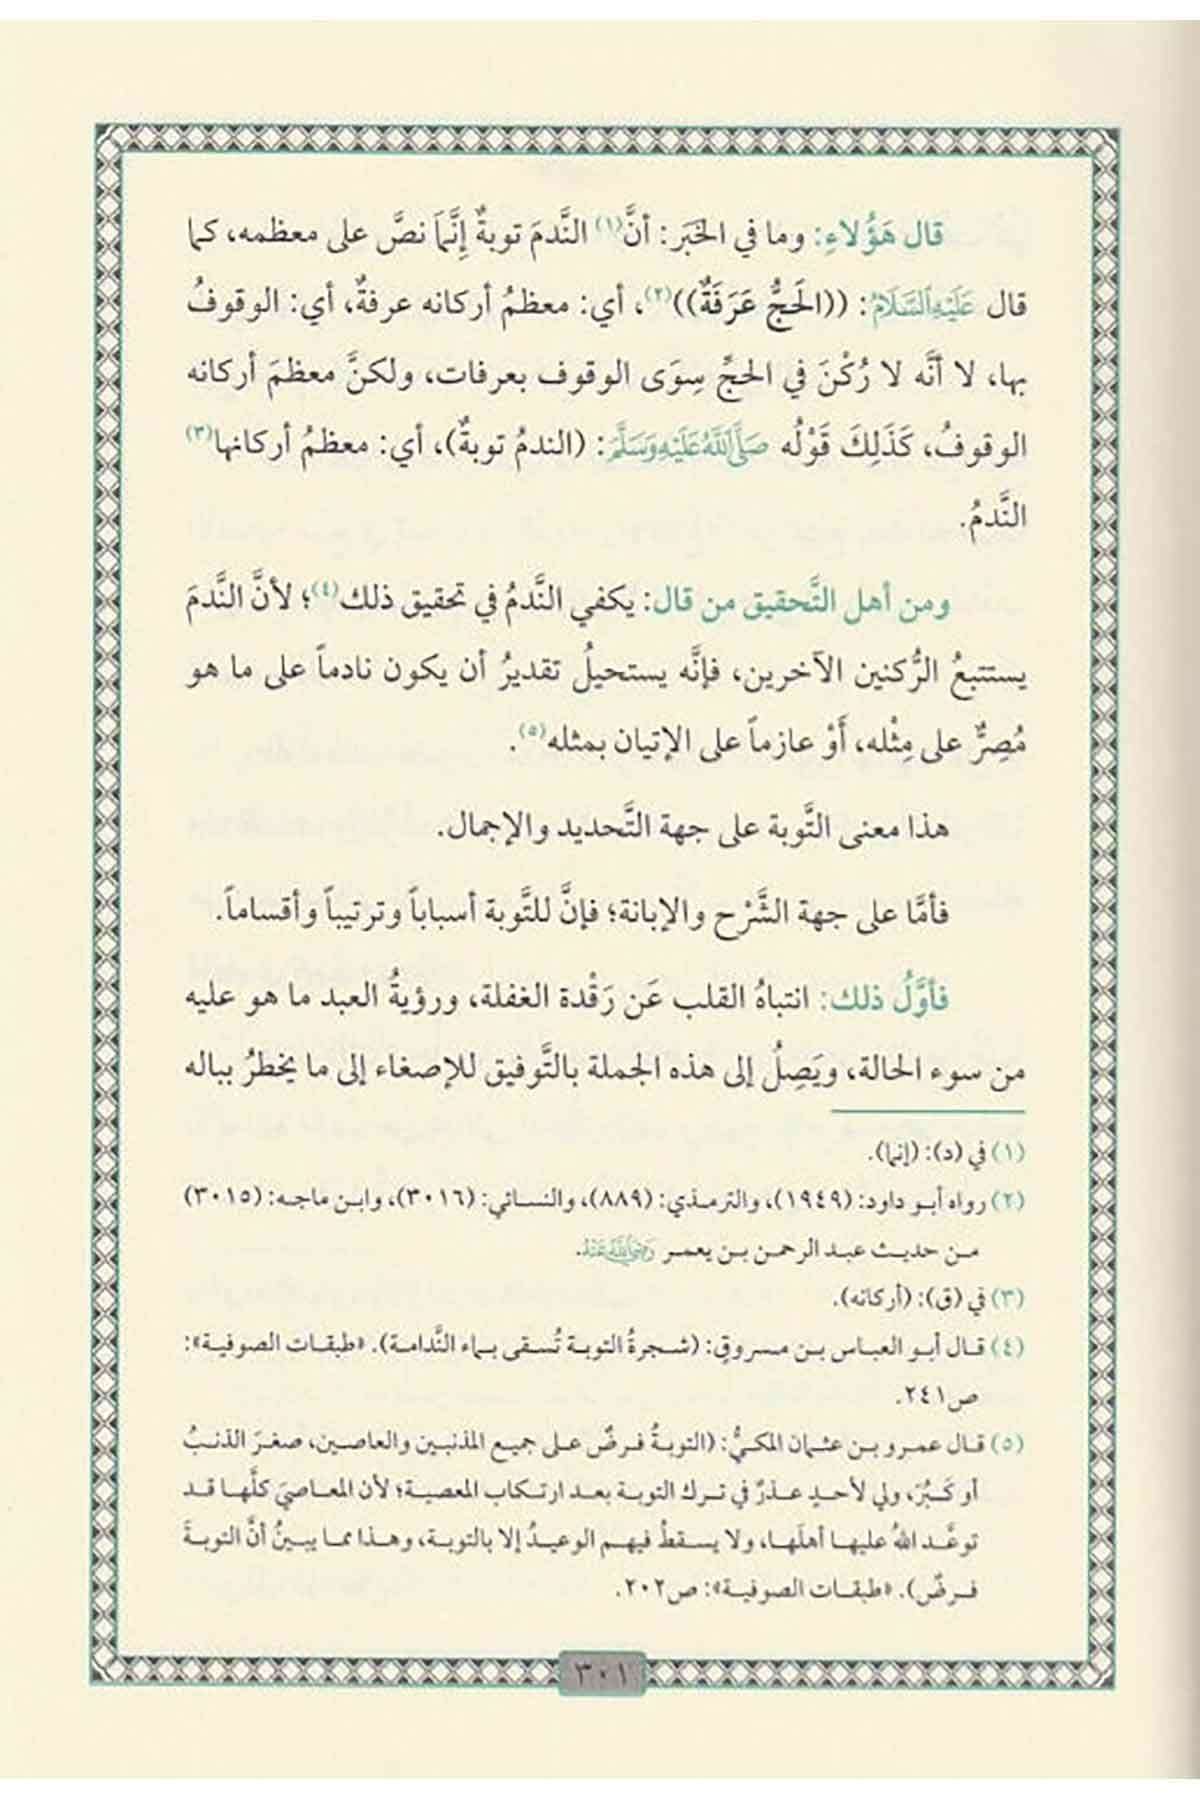 قال هَؤُلاءِ: وما في الخبَر: أنَّ(١) النَّدمَ توبةٌ إِنَّمَا نصَّ على معظمه، كما
قال عَلَيْهِ السَّلَامُ: ((الحَجُّ عَرَفَةٌ))(٢)، أي: معظمُ أركانه عرفةٌ، أي: الوقوفُ
بها، لا أنَّه لا رُكْنَ في الحجِّ سِوَى الوقوف بعرفات، ولكنَّ معظمَ أركانه
الوقوفُ، كَذَلِكَ قَوْلُه صَلَّى اللَّهُ عَلَيْهِ وَسَلَّمَ: (الندمُ توبةٌ)، أي: معظمُ أركانها(٣)
النَّدمُ.
ومن أهل التَّحقيق من قال: يكفي النَّدمُ في تحقيق ذلك(٤)؛ لأنَّ النَّدمَ
يستتبعُ الرُّكنين الآخرين، فإنَّه يستحيلُ تقديرُ أن يكون نادماً على ما هو
مُصِرٌّ على مِثْله، أَوْ عازماً على الإتيان بمثله(٥).
هذا معنى التَّوبة على جهة التَّحديد والإجمال.
فأمَّا على جهة الشَّرْح والإبانة؛ فإنَّ للتَّوبة أسباباً وترتيباً وأقساماً.
فأوَّلُ ذلك: انتباهُ القلب عَن رَقْدة الغفلة، ورؤيةُ العبد ما هو عليه
من سوء الحالة، ويَصِلُ إلى هذه الجملة بالتَّوفيق للإصغاء إلى ما يخطرُ بباله
(١) في (د): (إنما).
(٢) رواه أبو داود: (١٩٤٩)، والترمذي: (٨٨٩)، والنسائي: (٣٠١٦)، وابن ماجه: (٣٠١٥)
من حديث عبد الرحمن بن يعمر رَضِيَ اللَّهُ عَنْهُ.
(٣) في (ق): (أركانه).
(٤) قال أبو العباس بن مسروقٍ: (شجرةُ التوبة تُسقى بماء النَّدامة). «طبقات الصوفية»:
ص٢٤١.
(٥) قال عمرو بن عثمان المكيُّ: (التوبةُ فرضٌ على جميع المذنبين والعاصين، صغرَ الذنبُ
أو كَبُرَ، ولي لأحدٍ عذرٌ في ترك التوبة بعد ارتكاب المعصية؛ لأن المعاصيَ كلَّها قد
توعَّد اللهُ عليها أهلَها، ولا يسقطُ فيهم الوعيدُ إلا بالتوبة، وهذا مما يبينُ أنَّ التوبةَ
فرضٌ). «طبقات الصوفية»: ص٢٠٢.
٣٠١